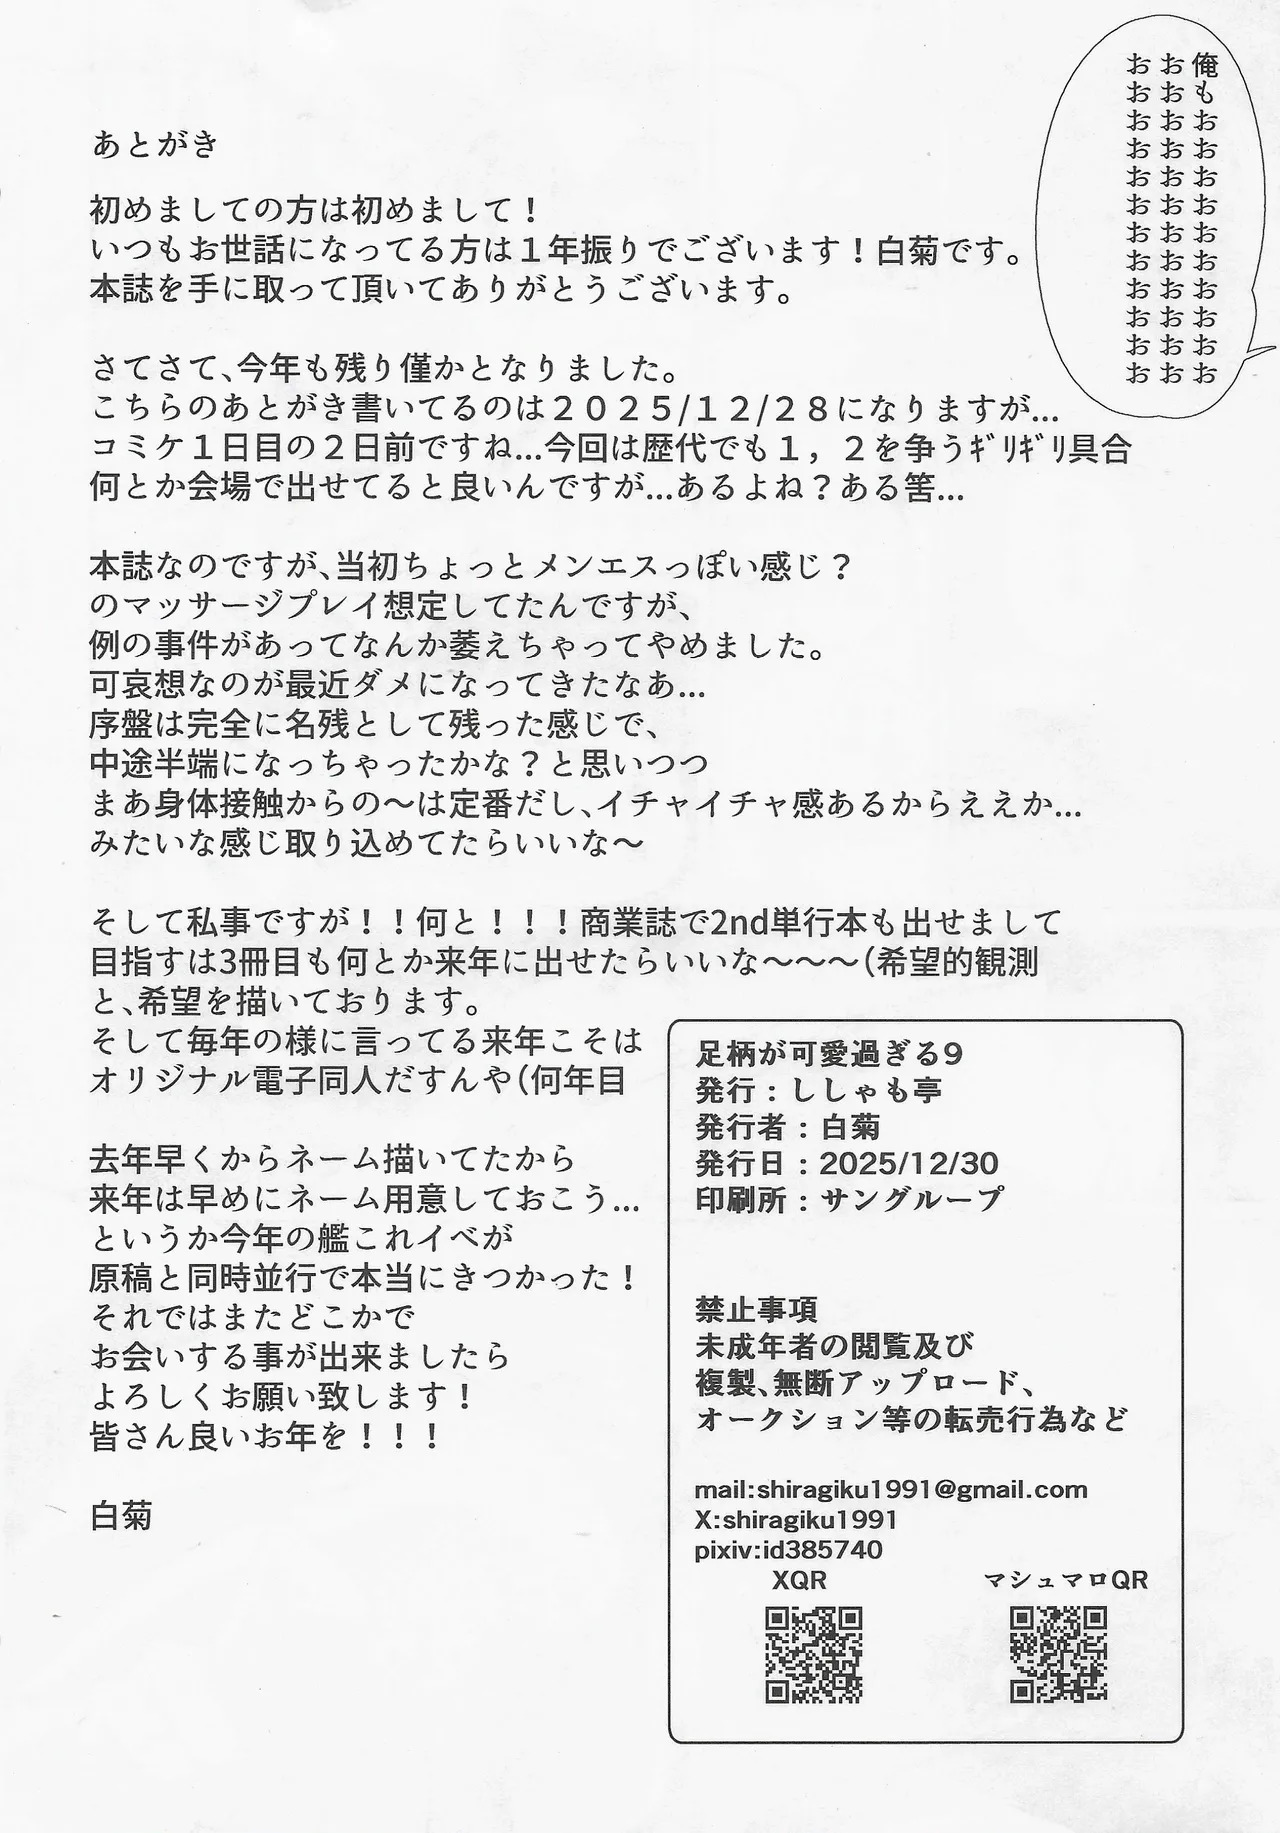 俺もおおおおおおおおおお
おおおおおおおおおおおお
おおおおおおおおおおおお
あとがき
初めましての方は初めまして！
いつもお世話になってる方は１年振りでございます！白菊です。
本誌を手に取って頂いてありがとうございます。
さてさて、今年も残り僅かとなりました。
こちらのあとがき書いてるのは２０２５/１２/２８になりますが…
コミケ１日目の２日前ですね…今回は歴代でも１，２を争うｷﾞﾘｷﾞﾘ具合
何とか会場で出せてると良いんですが…あるよね？ある筈…
本誌なのですが、当初ちょっとメンエスっぽい感じ？
のマッサージプレイ想定してたんですが、
例の事件があってなんか萎えちゃってやめました。
可哀想なのが最近ダメになってきたなあ…
序盤は完全に名残として残った感じで、
中途半端になっちゃったかな？と思いつつ
まあ身体接触からの～は定番だし、イチャイチャ感あるからええか…
みたいな感じ取り込めてたらいいな～
そして私事ですが！！何と！！！商業誌で2nd単行本も出せまして
目指すは3冊目も何とか来年に出せたらいいな～～～（希望的観測
と、希望を描いております。
そして毎年の様に言ってる来年こそは
オリジナル電子同人だすんや（何年目
去年早くからネーム描いてたから
来年は早めにネーム用意しておこう…
というか今年の艦これイベが
原稿と同時並行で本当にきつかった！
それではまたどこかで
お会いする事が出来ましたら
よろしくお願い致します！
皆さん良いお年を！！！
白菊
足柄が可愛過ぎる9
発行：ししゃも亭
発行者：白菊
発行日：2025/12/30
印刷所：サングループ
禁止事項
未成年者の閲覧及び
複製、無断アップロード、
オークション等の転売行為など
mail:shiragiku1991@gmail.com
X:shiragiku1991
pixiv:id385740
XQR
マシュマロQR